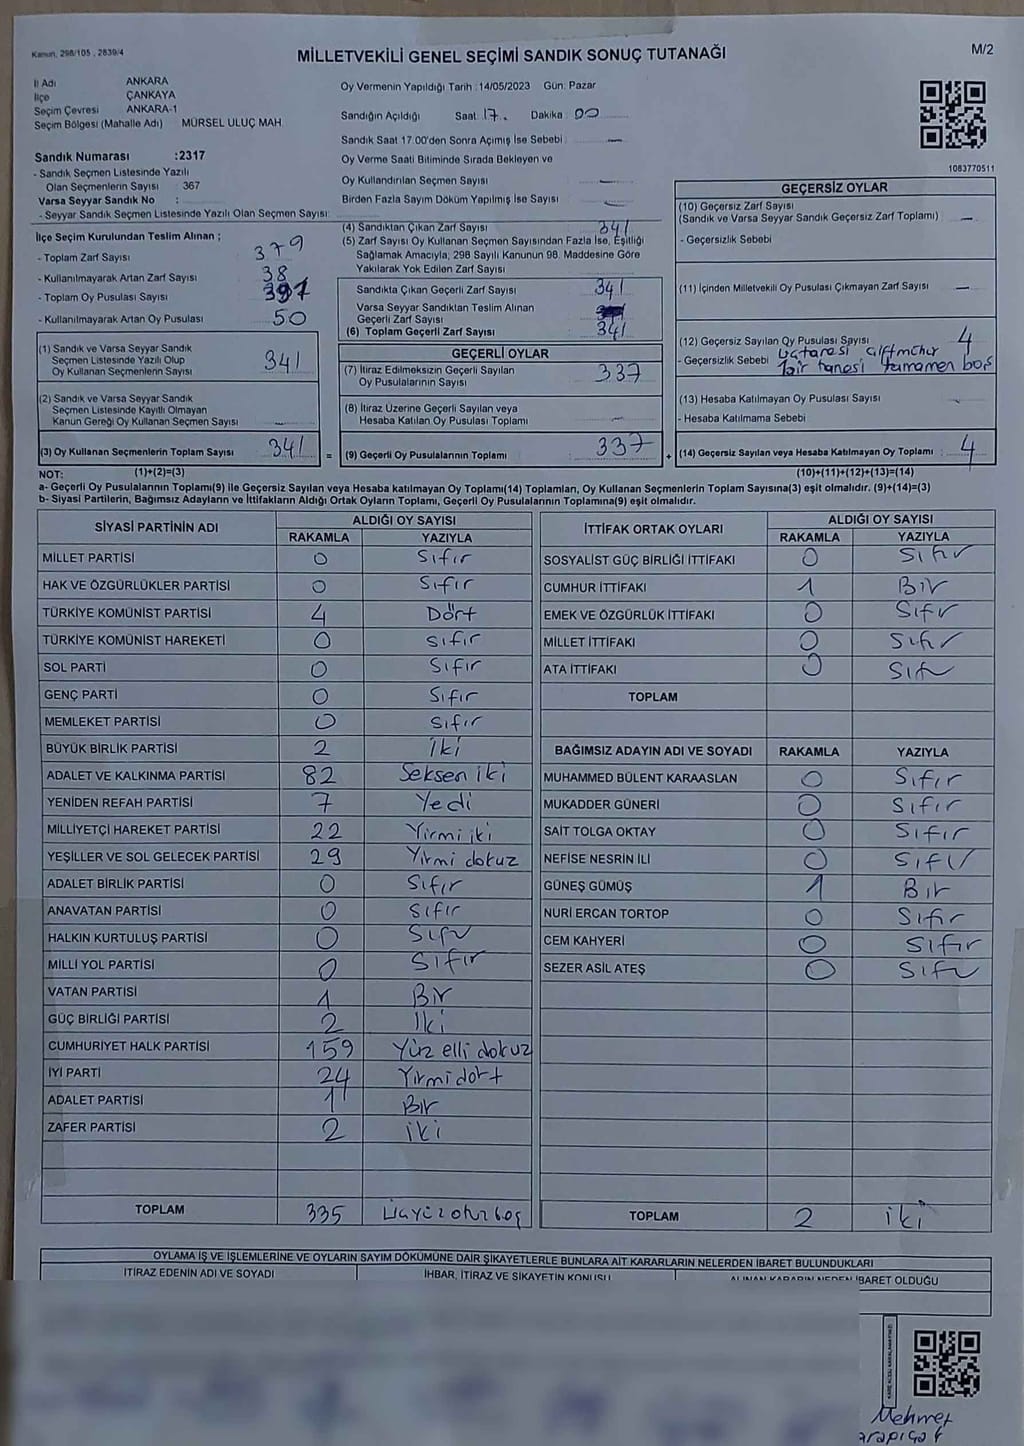 Kanun, 298/105 , 2839/4
MİLLETVEKİLİ GENEL SEÇİMİ SANDIK SONUÇ TUTANAĞI
M/2
İl Adı ANKARA
İlçe ÇANKAYA
Seçim Çevresi ANKARA-1
Seçim Bölgesi (Mahalle Adı) MÜRSEL ULUÇ MAH.
Sandık Numarası :2317
- Sandık Seçmen Listesinde Yazılı
Olan Seçmenlerin Sayısı : 367
Varsa Seyyar Sandık No :
- Seyyar Sandık Seçmen Listesinde Yazılı Olan Seçmen Sayısı:
Oy Vermenin Yapıldığı Tarih :14/05/2023 Gün: Pazar
Sandığın Açıldığı Saat 17. Dakika 00
Sandık Saat 17.00'den Sonra Açımış İse Sebebi : —
Oy Verme Saati Bitiminde Sırada Bekleyen ve
Oy Kullandırılan Seçmen Sayısı —
Birden Fazla Sayım Döküm Yapılmış İse Sayısı —
1083770511
İlçe Seçim Kurulundan Teslim Alınan ;
- Toplam Zarf Sayısı 379
- Kullanılmayarak Artan Zarf Sayısı 38
- Toplam Oy Pusulası Sayısı 391
- Kullanılmayarak Artan Oy Pusulası 50
(1) Sandık ve Varsa Seyyar Sandık
Seçmen Listesinde Yazılı Olup
Oy Kullanan Seçmenlerin Sayısı 341
(2) Sandık ve Varsa Seyyar Sandık
Seçmen Listesinde Kayıtlı Olmayan
Kanun Gereği Oy Kullanan Seçmen Sayısı —
(3) Oy Kullanan Seçmenlerin Toplam Sayısı 341 =
(4) Sandıktan Çıkan Zarf Sayısı 341
(5) Zarf Sayısı Oy Kullanan Seçmen Sayısından Fazla İse, Eşitliği
Sağlamak Amacıyla, 298 Sayılı Kanunun 98. Maddesine Göre
Yakılarak Yok Edilen Zarf Sayısı
Sandıkta Çıkan Geçerli Zarf Sayısı 341
Varsa Seyyar Sandıktan Teslim Alınan
Geçerli Zarf Sayısı
(6) Toplam Geçerli Zarf Sayısı 341
GEÇERLİ OYLAR
(7) İtiraz Edilmeksizin Geçerli Sayılan
Oy Pusulalarının Sayısı 337
(8) İtiraz Üzerine Geçerli Sayılan veya
Hesaba Katılan Oy Pusulası Toplamı —
(9) Geçerli Oy Pusulalarının Toplamı 337 +
GEÇERSİZ OYLAR
(10) Geçersiz Zarf Sayısı
(Sandık ve Varsa Seyyar Sandık Geçersiz Zarf Toplamı) —
- Geçersizlik Sebebi
(11) İçinden Milletvekili Oy Pusulası Çıkmayan Zarf Sayısı —
(12) Geçersiz Sayılan Oy Pusulası Sayısı 4
- Geçersizlik Sebebi üçtanesi çiftmühür
bir tanesi tamamen boş
(13) Hesaba Katılmayan Oy Pusulası Sayısı
- Hesaba Katılmama Sebebi
(14) Geçersiz Sayılan veya Hesaba Katılmayan Oy Toplamı 4
NOT: (1)+(2)=(3) (10)+(11)+(12)+(13)=(14)
a- Geçerli Oy Pusulalarının Toplamı(9) ile Geçersiz Sayılan veya Hesaba katılmayan Oy Toplamı(14) Toplamları, Oy Kullanan Seçmenlerin Toplam Sayısına(3) eşit olmalıdır. (9)+(14)=(3)
b- Siyasi Partilerin, Bağımsız Adayların ve İttifakların Aldığı Ortak Oyların Toplamı, Geçerli Oy Pusulalarının Toplamına(9) eşit olmalıdır.
SİYASİ PARTİNİN ADI ALDIĞI OY SAYISI
RAKAMLA YAZIYLA
MİLLET PARTİSİ 0 Sıfır
HAK VE ÖZGÜRLÜKLER PARTİSİ 0 Sıfır
TÜRKİYE KOMÜNİST PARTİSİ 4 Dört
TÜRKİYE KOMÜNİST HAREKETİ 0 Sıfır
SOL PARTİ 0 Sıfır
GENÇ PARTİ 0 Sıfır
MEMLEKET PARTİSİ 0 Sıfır
BÜYÜK BİRLİK PARTİSİ 2 İki
ADALET VE KALKINMA PARTİSİ 82 Seksen iki
YENİDEN REFAH PARTİSİ 7 Yedi
MİLLİYETÇİ HAREKET PARTİSİ 22 Yirmi iki
YEŞİLLER VE SOL GELECEK PARTİSİ 29 Yirmi dokuz
ADALET BİRLİK PARTİSİ 0 Sıfır
ANAVATAN PARTİSİ 0 Sıfır
HALKIN KURTULUŞ PARTİSİ 0 Sıfır
MİLLİ YOL PARTİSİ 0 Sıfır
VATAN PARTİSİ 1 Bir
GÜÇ BİRLİĞİ PARTİSİ 2 İki
CUMHURİYET HALK PARTİSİ 159 Yüz elli dokuz
İYİ PARTİ 24 Yirmi dört
ADALET PARTİSİ 1 Bir
ZAFER PARTİSİ 2 iki
TOPLAM 335 Üçyüz otuz beş
İTTİFAK ORTAK OYLARI ALDIĞI OY SAYISI
RAKAMLA YAZIYLA
SOSYALİST GÜÇ BİRLİĞİ İTTİFAKI 0 Sıfır
CUMHUR İTTİFAKI 1 Bir
EMEK VE ÖZGÜRLÜK İTTİFAKI 0 Sıfır
MİLLET İTTİFAKI 0 Sıfır
ATA İTTİFAKI 0 Sıfır
TOPLAM
BAĞIMSIZ ADAYIN ADI VE SOYADI RAKAMLA YAZIYLA
MUHAMMED BÜLENT KARAASLAN 0 Sıfır
MUKADDER GÜNERİ 0 Sıfır
SAİT TOLGA OKTAY 0 Sıfır
NEFİSE NESRİN İLİ 0 Sıfır
GÜNEŞ GÜMÜŞ 1 Bir
NURİ ERCAN TORTOP 0 Sıfır
CEM KAHYERİ 0 Sıfır
SEZER ASİL ATEŞ 0 Sıfır
TOPLAM 2 iki
OYLAMA İŞ VE İŞLEMLERİNE VE OYLARIN SAYIM DÖKÜMÜNE DAİR ŞİKAYETLERLE BUNLARA AİT KARARLARIN NELERDEN İBARET BULUNDUKLARI
İTİRAZ EDENİN ADI VE SOYADI İHBAR, İTİRAZ VE ŞİKAYETİN KONUSU ALINAN KARARIN NEDEN İBARET OLDUĞU
Mehmet